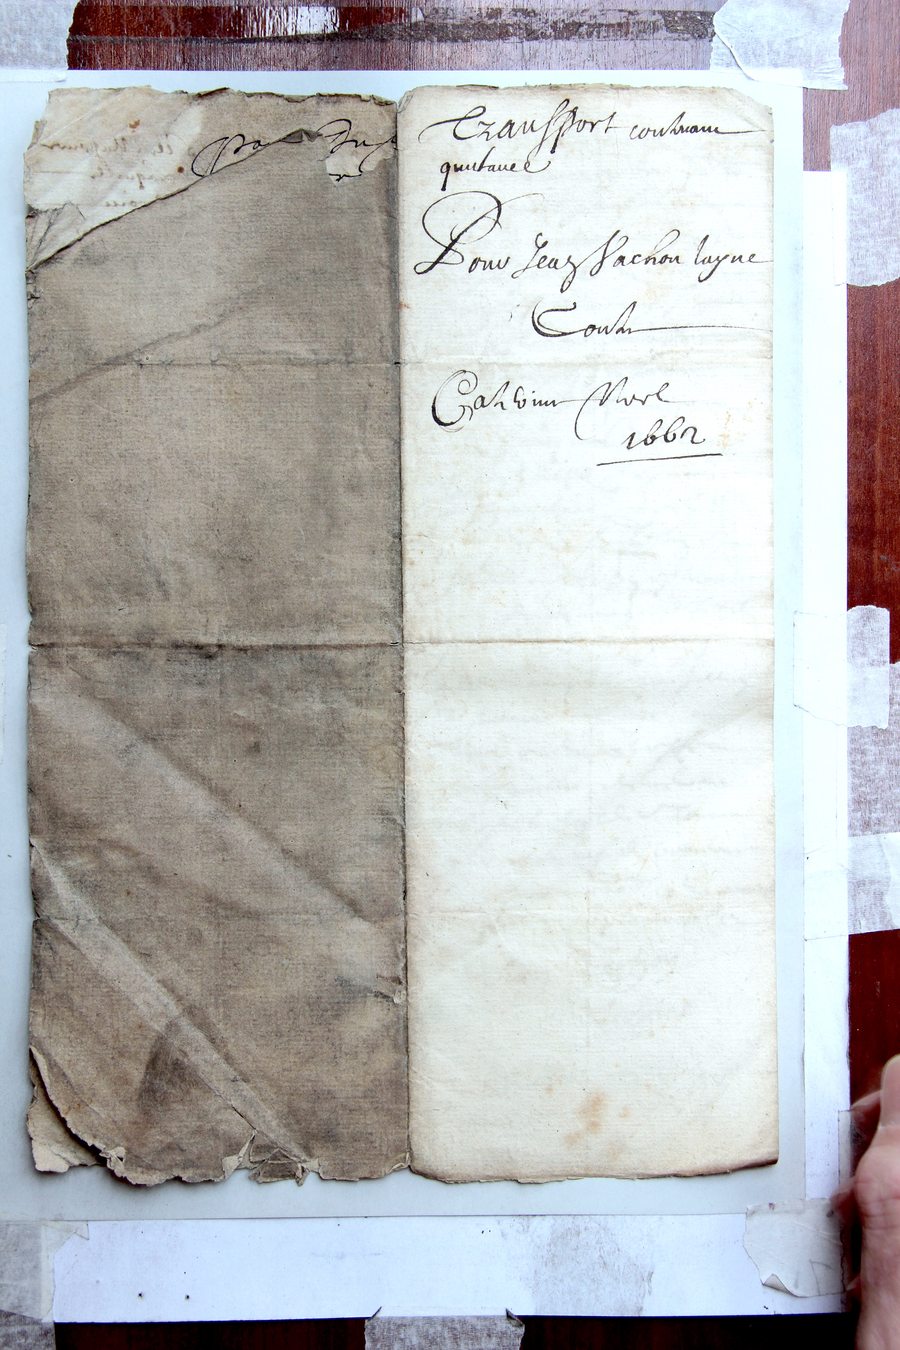 Transport contenant
quittance
Pour Jean Vachon laysne
Contre
Catherine Noel
1662